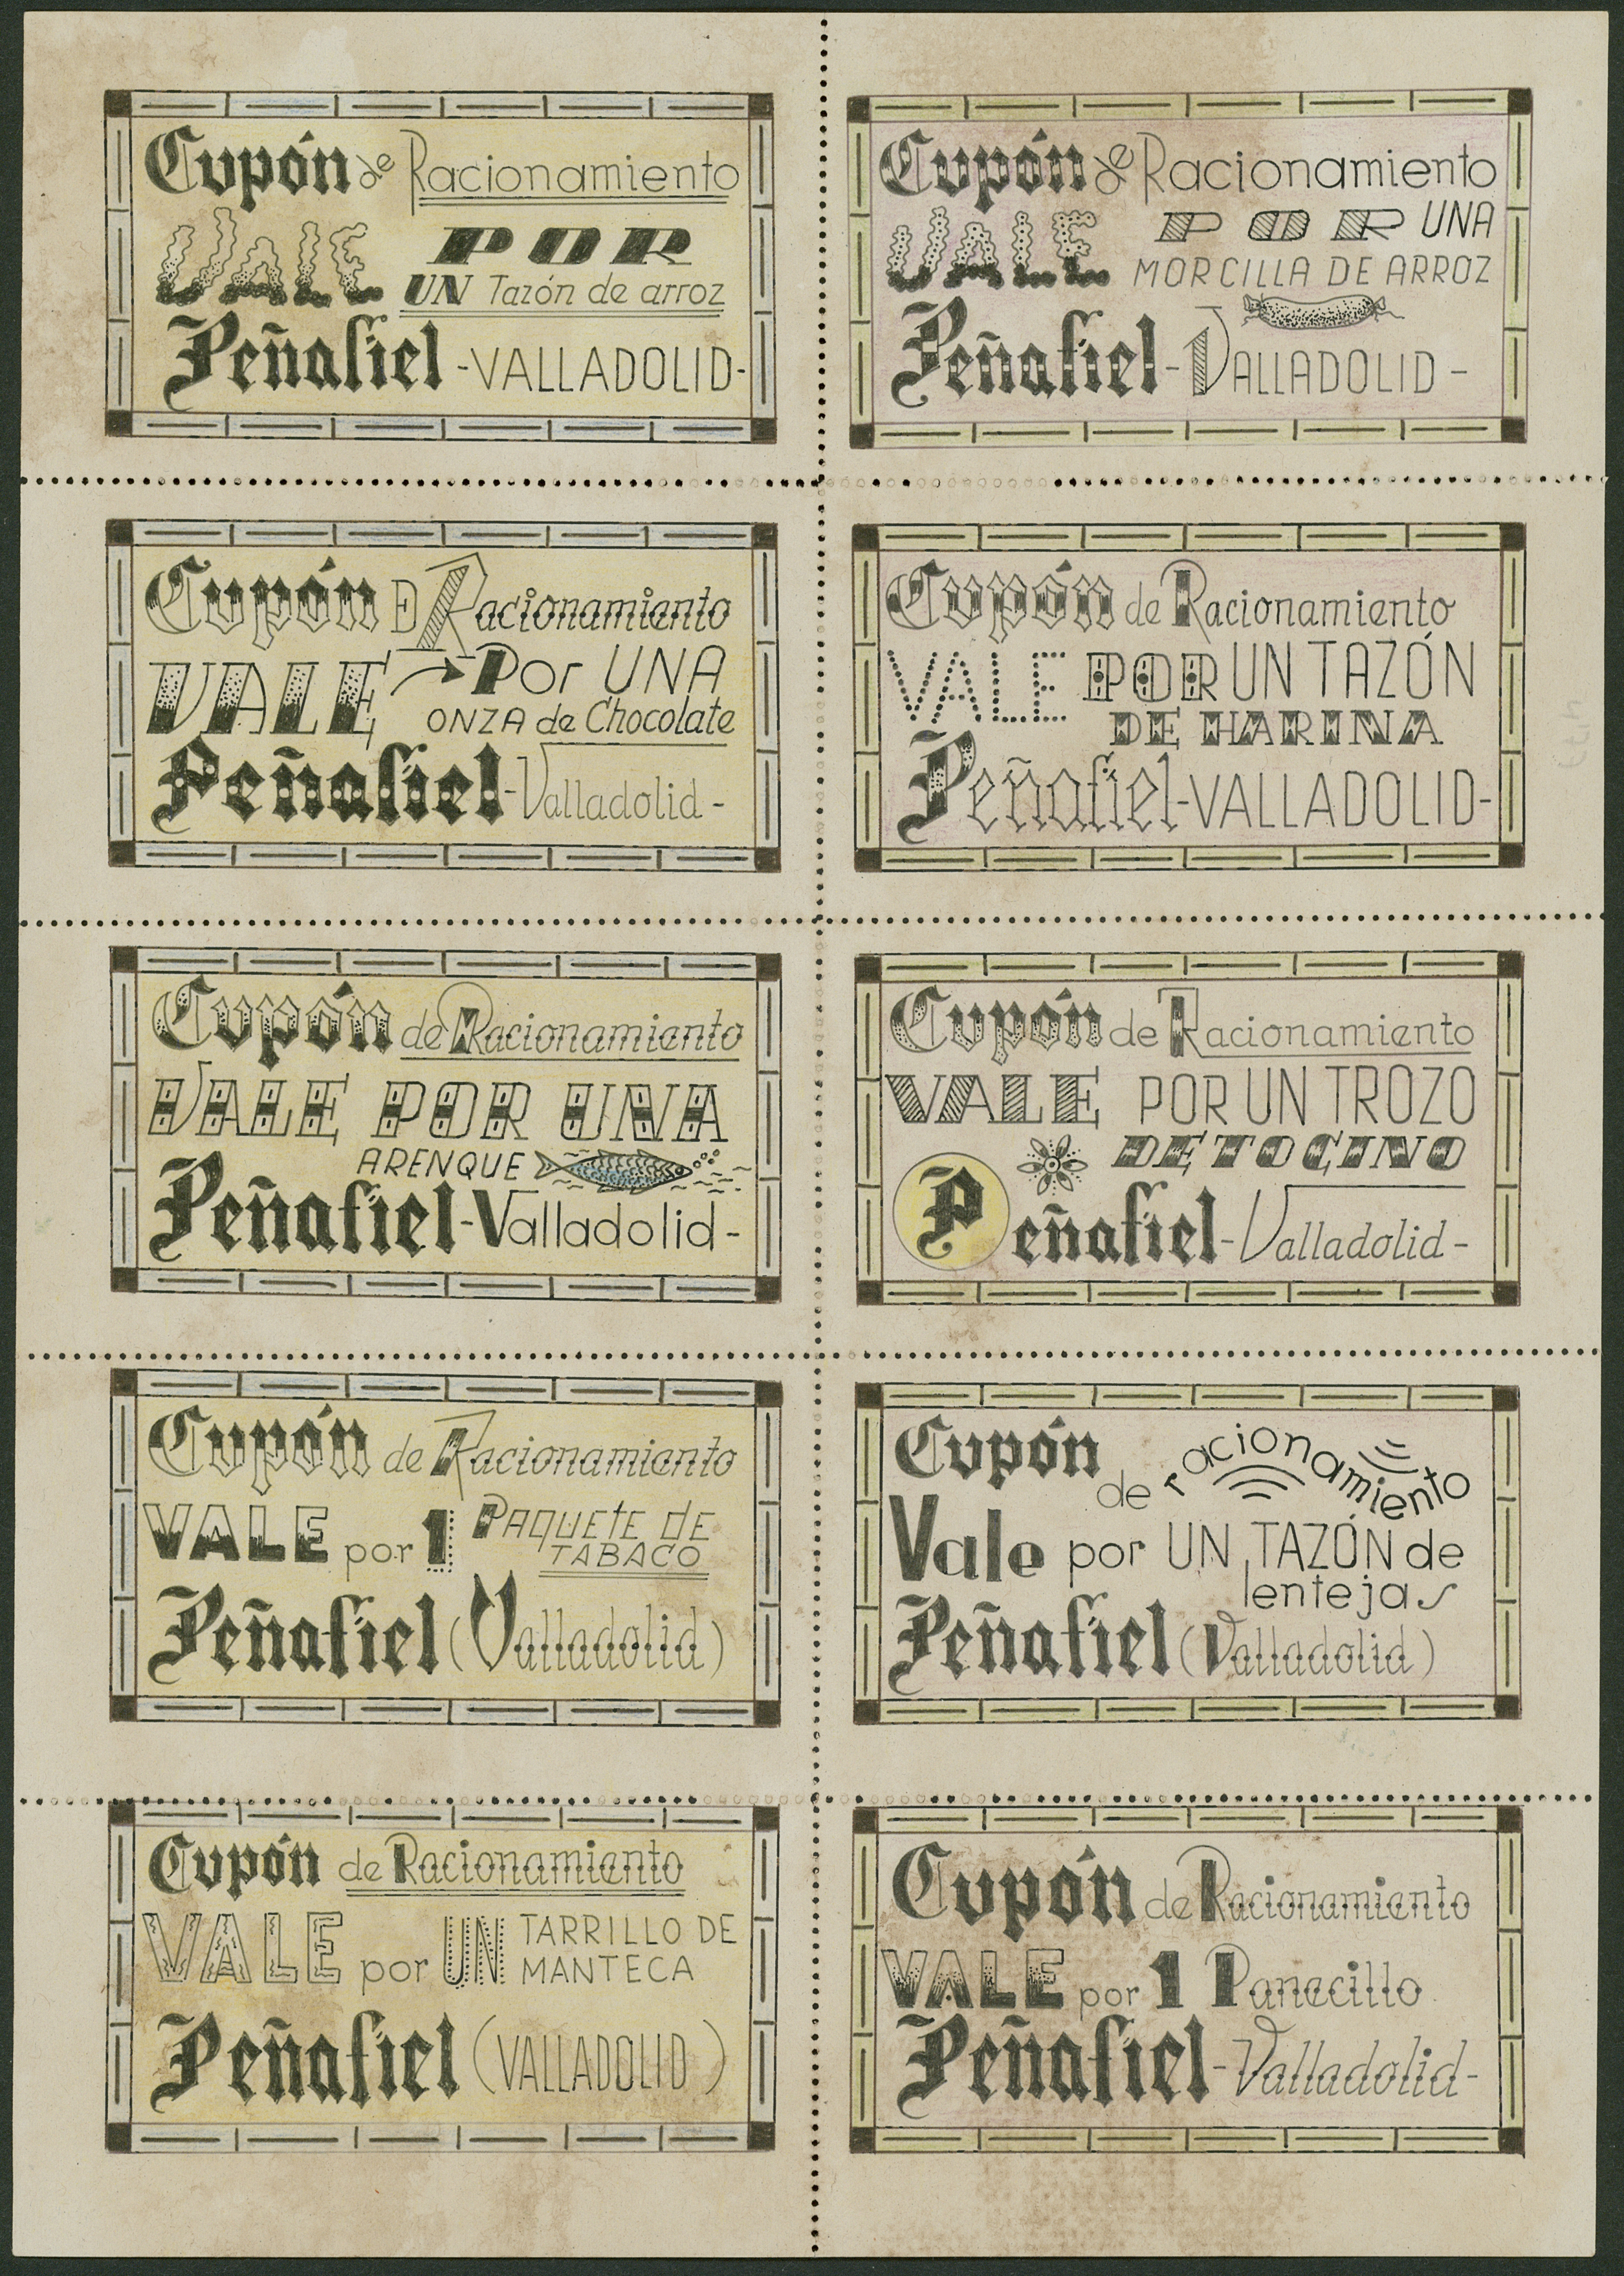 Cupón de Racionamiento
VALE POR
UN Tazón de arroz
Peñafiel -VALLADOLID-
Cupón de Racionamiento
VALE POR UNA
MORCILLA DE ARROZ
Peñafiel - VALLADOLID -
Cupón DE Racionamiento
VALE Por UNA
ONZA de Chocolate
Peñafiel - Valladolid -
Cupón de Racionamiento
VALE POR UN TAZÓN
DE HARINA
Peñafiel -VALLADOLID-
Cupón de Racionamiento
VALE POR UNA
ARENQUE
Peñafiel - Valladolid -
Cupón de Racionamiento
VALE POR UN TROZO
DE TOCINO
Peñafiel - Valladolid -
Cupón de Racionamiento
VALE por 1 PAQUEtE dE
TABACO
Peñafiel (Valladolid)
Cupón
de racionamiento
Vale por UN TAZÓN de
lentejas
Peñafiel (Valladolid)
Cupón de Racionamiento
VALE por UN TARRILLO DE
MANTECA
Peñafiel (VALLADOLID)
Cupón de Racionamiento
VALE por 1 Panecillo
Peñafiel - Valladolid -